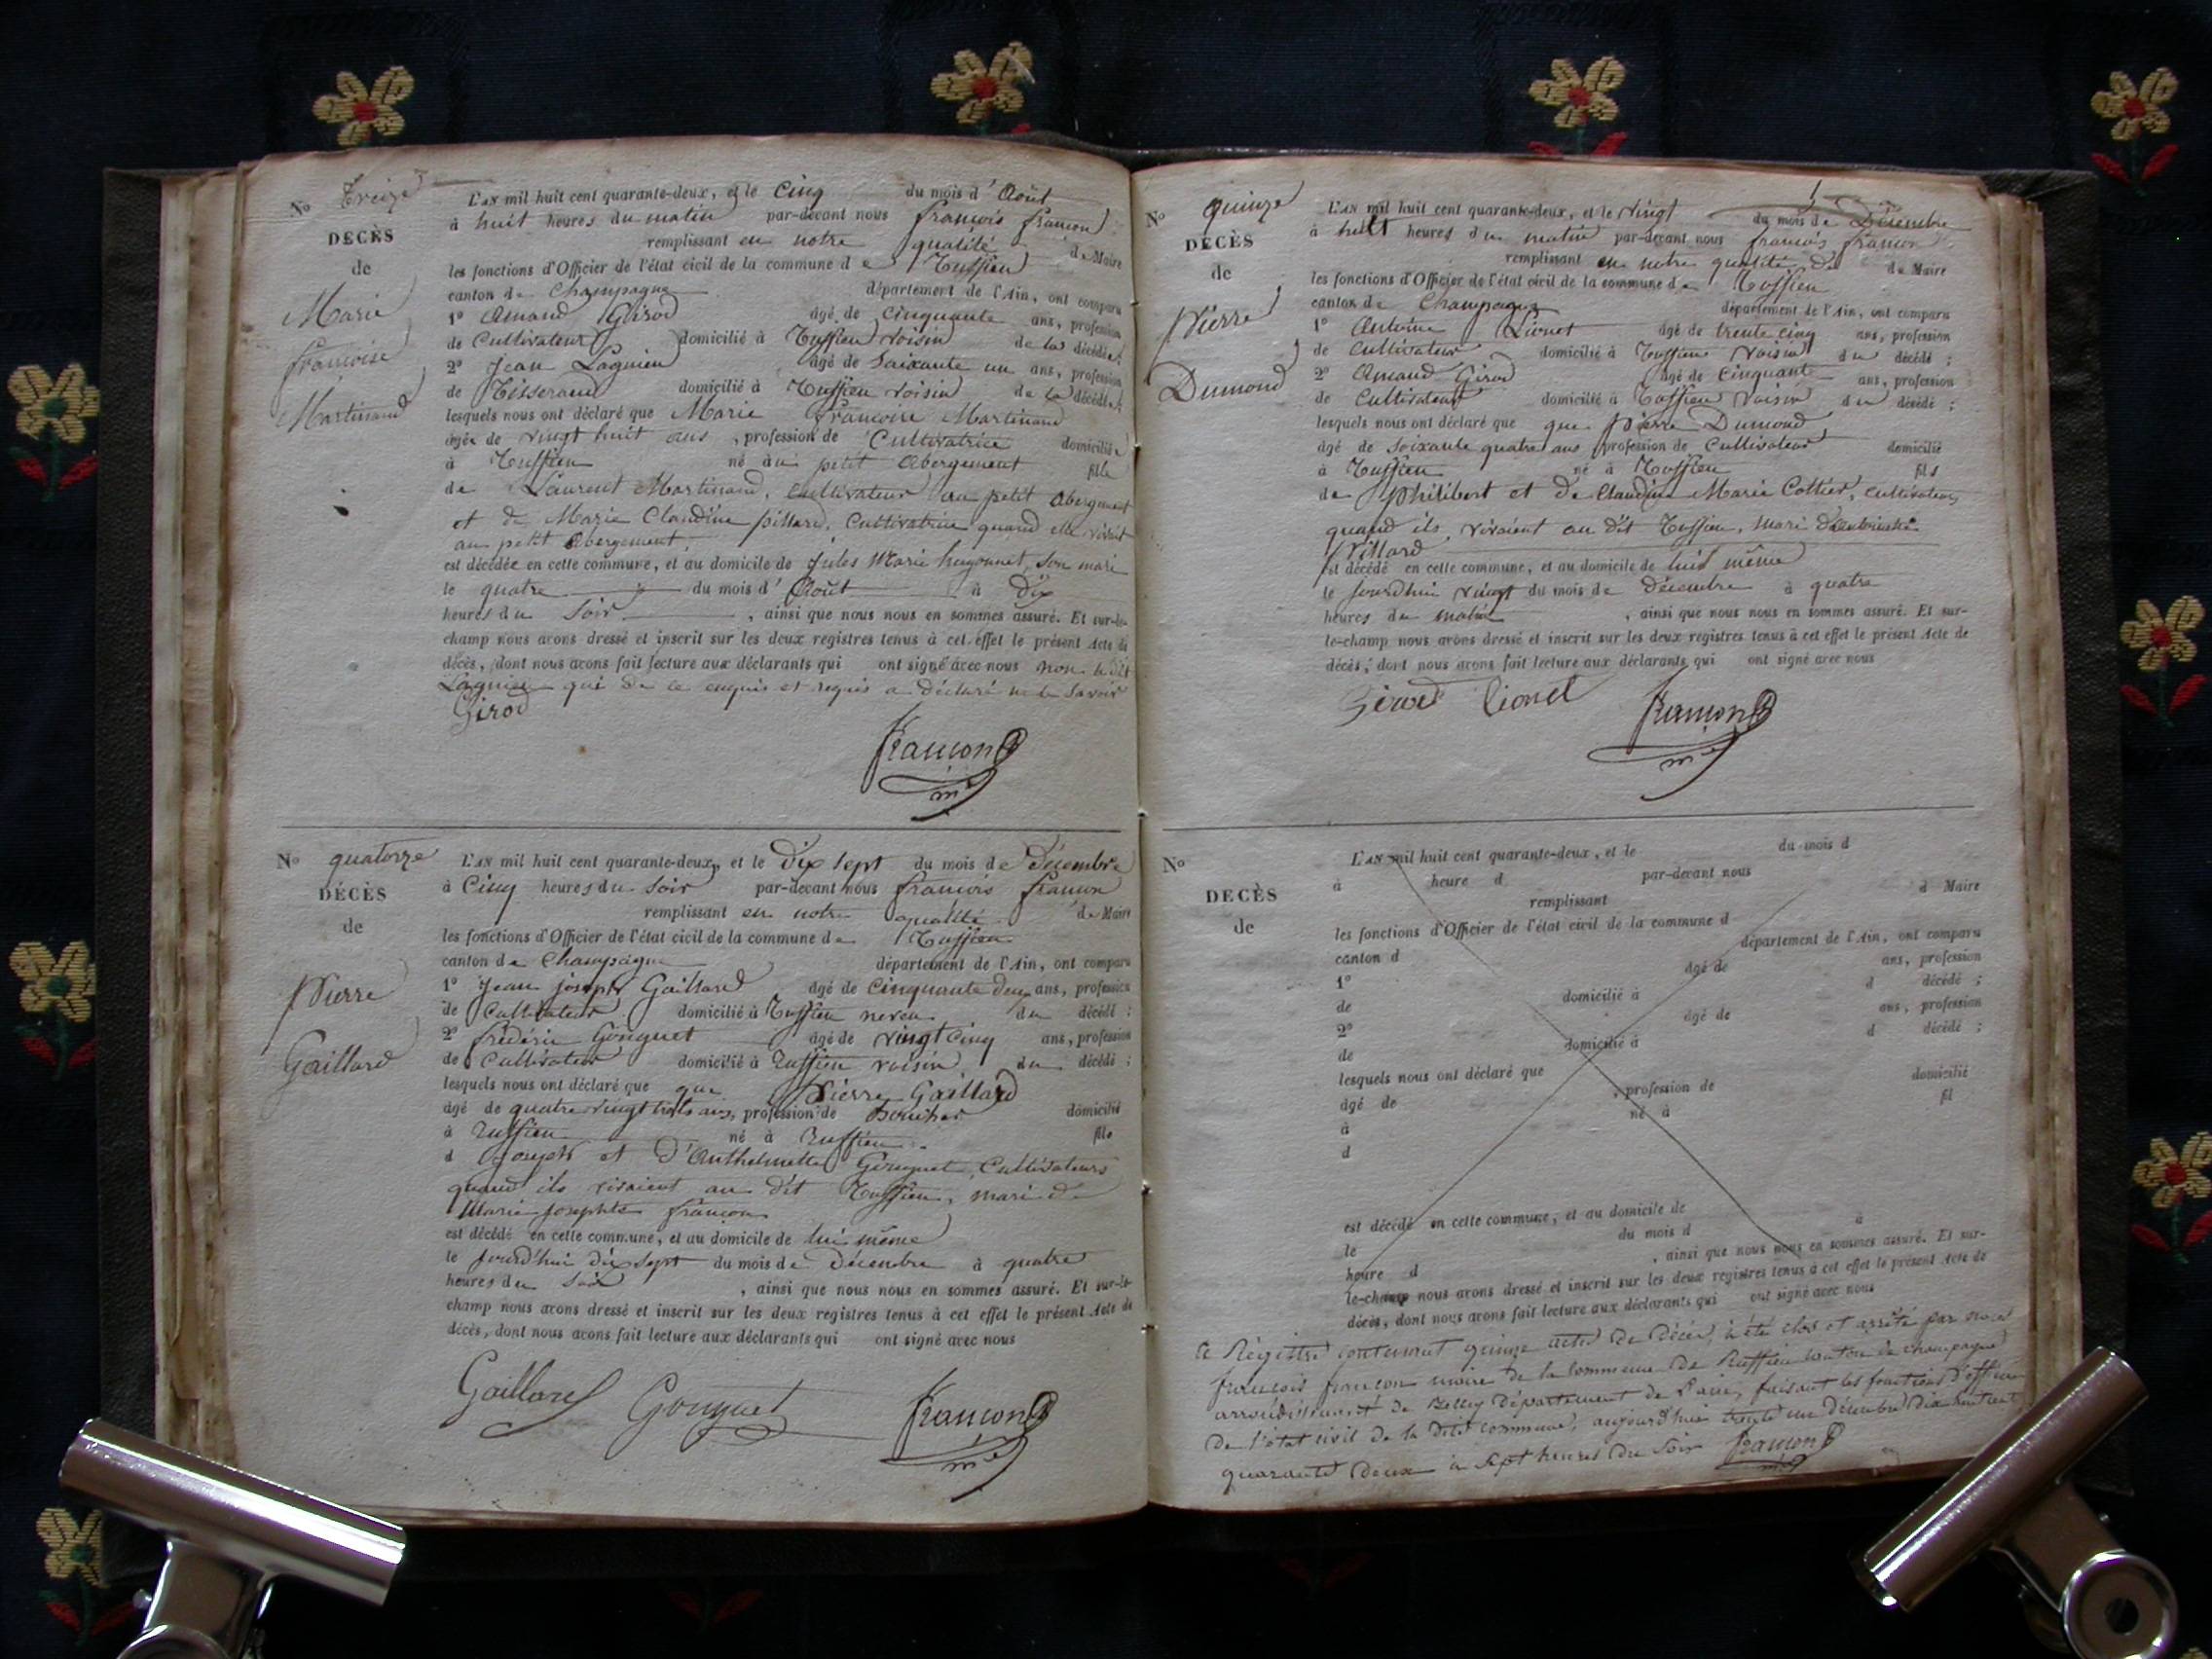 No Treize
DECÈS
de
Marie
françoise
Martinand
L'AN mil huit cent quarante-deux, et le cinq du mois d'Août
à huit heures du matin par-devant nous françois françon
remplissant en notre qualité de Maire
les fonctions d'Officier de l'état civil de la commune de Ruffieu
canton de Champagne département de l'Ain, ont comparu
1° Amand Girod âgé de cinquante ans, profession
de Cultivateur domicilié à Ruffieu voisin de la décédée;
2° Jean Lagnieu âgé de Soixante un ans, profession
de Tisserand domicilié à Ruffieu voisin de la décédée;
lesquels nous ont déclaré que Marie françoise Martinand
âgée de vingt huit ans, profession de Cultivatrice domiciliée
à Ruffieu né au petit Abergement fille
de Laurent Martinand, cultivateur au petit Abergement
et de Marie Claudine pillard, Cultivatrice quand elle vivait
au petit Abergement,
est décédée en cette commune, et au domicile de Jules Marie hugonnet, son mari
le quatre du mois d'Août à Dix
heures du Soir, ainsi que nous nous en sommes assuré. Et sur-le-
champ nous avons dressé et inscrit sur les deux registres tenus à cet effet le présent Acte de
décès, dont nous avons fait lecture aux déclarants qui ont signé avec nous non le dit
Lagnieu qui de ce enquis et requis a déclaré ne le Savoir
Girod
françon
No quatorze
DÉCÈS
de
Pierre
Gaillard
L'AN mil huit cent quarante-deux, et le Dix sept du mois de Décembre
à Cinq heures du Soir par-devant nous françois françon
remplissant en notre qualité de Maire
les fonctions d'Officier de l'état civil de la commune de Ruffieu
canton de Champagne département de l'Ain, ont comparu
1° Jean joseph Gaillard âgé de Cinquante deux ans, profession
de Cultivateur domicilié à Ruffieu neveu du décédé;
2° frédéric Gonguet âgé de vingt cinq ans, profession
de Cultivateur domicilié à Ruffieu voisin du décédé;
lesquels nous ont déclaré que que Pierre Gaillard
âgé de quatre vingt trois ans, profession de domicilié
à Ruffieu né à Ruffieu fils
d Joseph et D'Anthelmette Gonguet, Cultivateurs
quand ils vivaient au dit Ruffieu, mari de
Marie Josephte françon
est décédé en cette commune, et au domicile de lui même
le jourd'hui dix sept du mois de Décembre à quatre
heures du Soir, ainsi que nous nous en sommes assuré. Et sur-le-
champ nous avons dressé et inscrit sur les deux registres tenus à cet effet le présent Acte de
décès, dont nous avons fait lecture aux déclarants qui ont signé avec nous
Gaillard Gonguet françon
No quinze
DÉCÈS
de
Pierre
Dumond
L'AN mil huit cent quarante-deux, et le vingt du mois de Décembre
à huit heures du matin par-devant nous françois françon
remplissant en notre qualité de de Maire
les fonctions d'Officier de l'état civil de la commune de Ruffieu
canton de Champagne département de l'Ain, ont comparu
1° Antoine Lionet âgé de trente cinq ans, profession
de cultivateur domicilié à Ruffieu voisin du décédé;
2° Amand Girod âgé de cinquante ans, profession
de Cultivateur domicilié à Ruffieu voisin du décédé;
lesquels nous ont déclaré que que Pierre Dumond
âgé de soixante quatre ans profession de cultivateur domicilié
à Ruffieu né à Ruffieu fils
de philibert et de Claudine Marie Cottier, cultivateurs
quand ils vivaient au dit Ruffieu, mari
Pillard
est décédé en cette commune, et au domicile de lui même
le jourd'hui vingt du mois de Décembre à quatre
heures du matin, ainsi que nous nous en sommes assuré. Et sur-
le-champ nous avons dressé et inscrit sur les deux registres tenus à cet effet le présent Acte de
décès, dont nous avons fait lecture aux déclarants qui ont signé avec nous
Girod Lionet françon
No
DECÈS
de
L'AN mil huit cent quarante-deux, et le du mois d
à heure d par-devant nous
remplissant d Maire
les fonctions d'Officier de l'état civil de la commune d
canton d département de l'Ain, ont comparu
1° âgé de ans, profession
de domicilié à d décédé;
2° âgé de ans, profession
de domicilié à d décédé;
lesquels nous ont déclaré que
âgé de, profession de domicilié
à né à fil
d
est décédé en cette commune, et au domicile de
le du mois d à
heure d, ainsi que nous nous en sommes assuré. Et sur-
le-champ nous avons dressé et inscrit sur les deux registres tenus à cet effet le présent Acte de
décès, dont nous avons fait lecture aux déclarants qui ont signé avec nous
Le Régistre contenant quinze actes de Décès, à été clos et arrêté par nous
françois françon maire de la Commune de Ruffieu canton de champagne
arrondissement de Belley Département de l'ain, faisant les fonctions d'officier
de l'état civil de la dite commune, aujourd'hui trente un décembre dix huit cent
quarante Deux à Sept heures du Soir françon